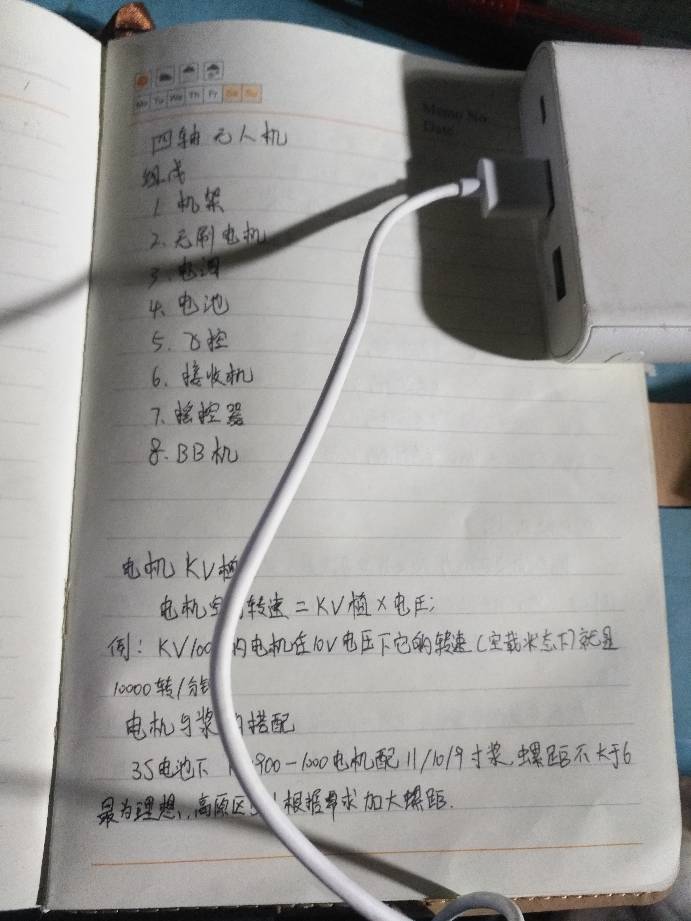 Mo Tu We Th Fr Sa Su
Memo No
Date
四轴无人机
组成
1 机架
2. 无刷电机
3. 电调
4. 电池
5. 飞控
6. 接收机
7. 摇控器
8. BB机
电机 KV值
电机 转速 = KV值 × 电压;
例: KV100 的电机在10V电压下它的转速 (空载状态下) 就是
10000转/分钟
电机与桨 搭配
3S电池下 900-1000电机配 11/10/9寸桨, 螺距不大于6
最为理想, 高原区 根据 求加大螺距.